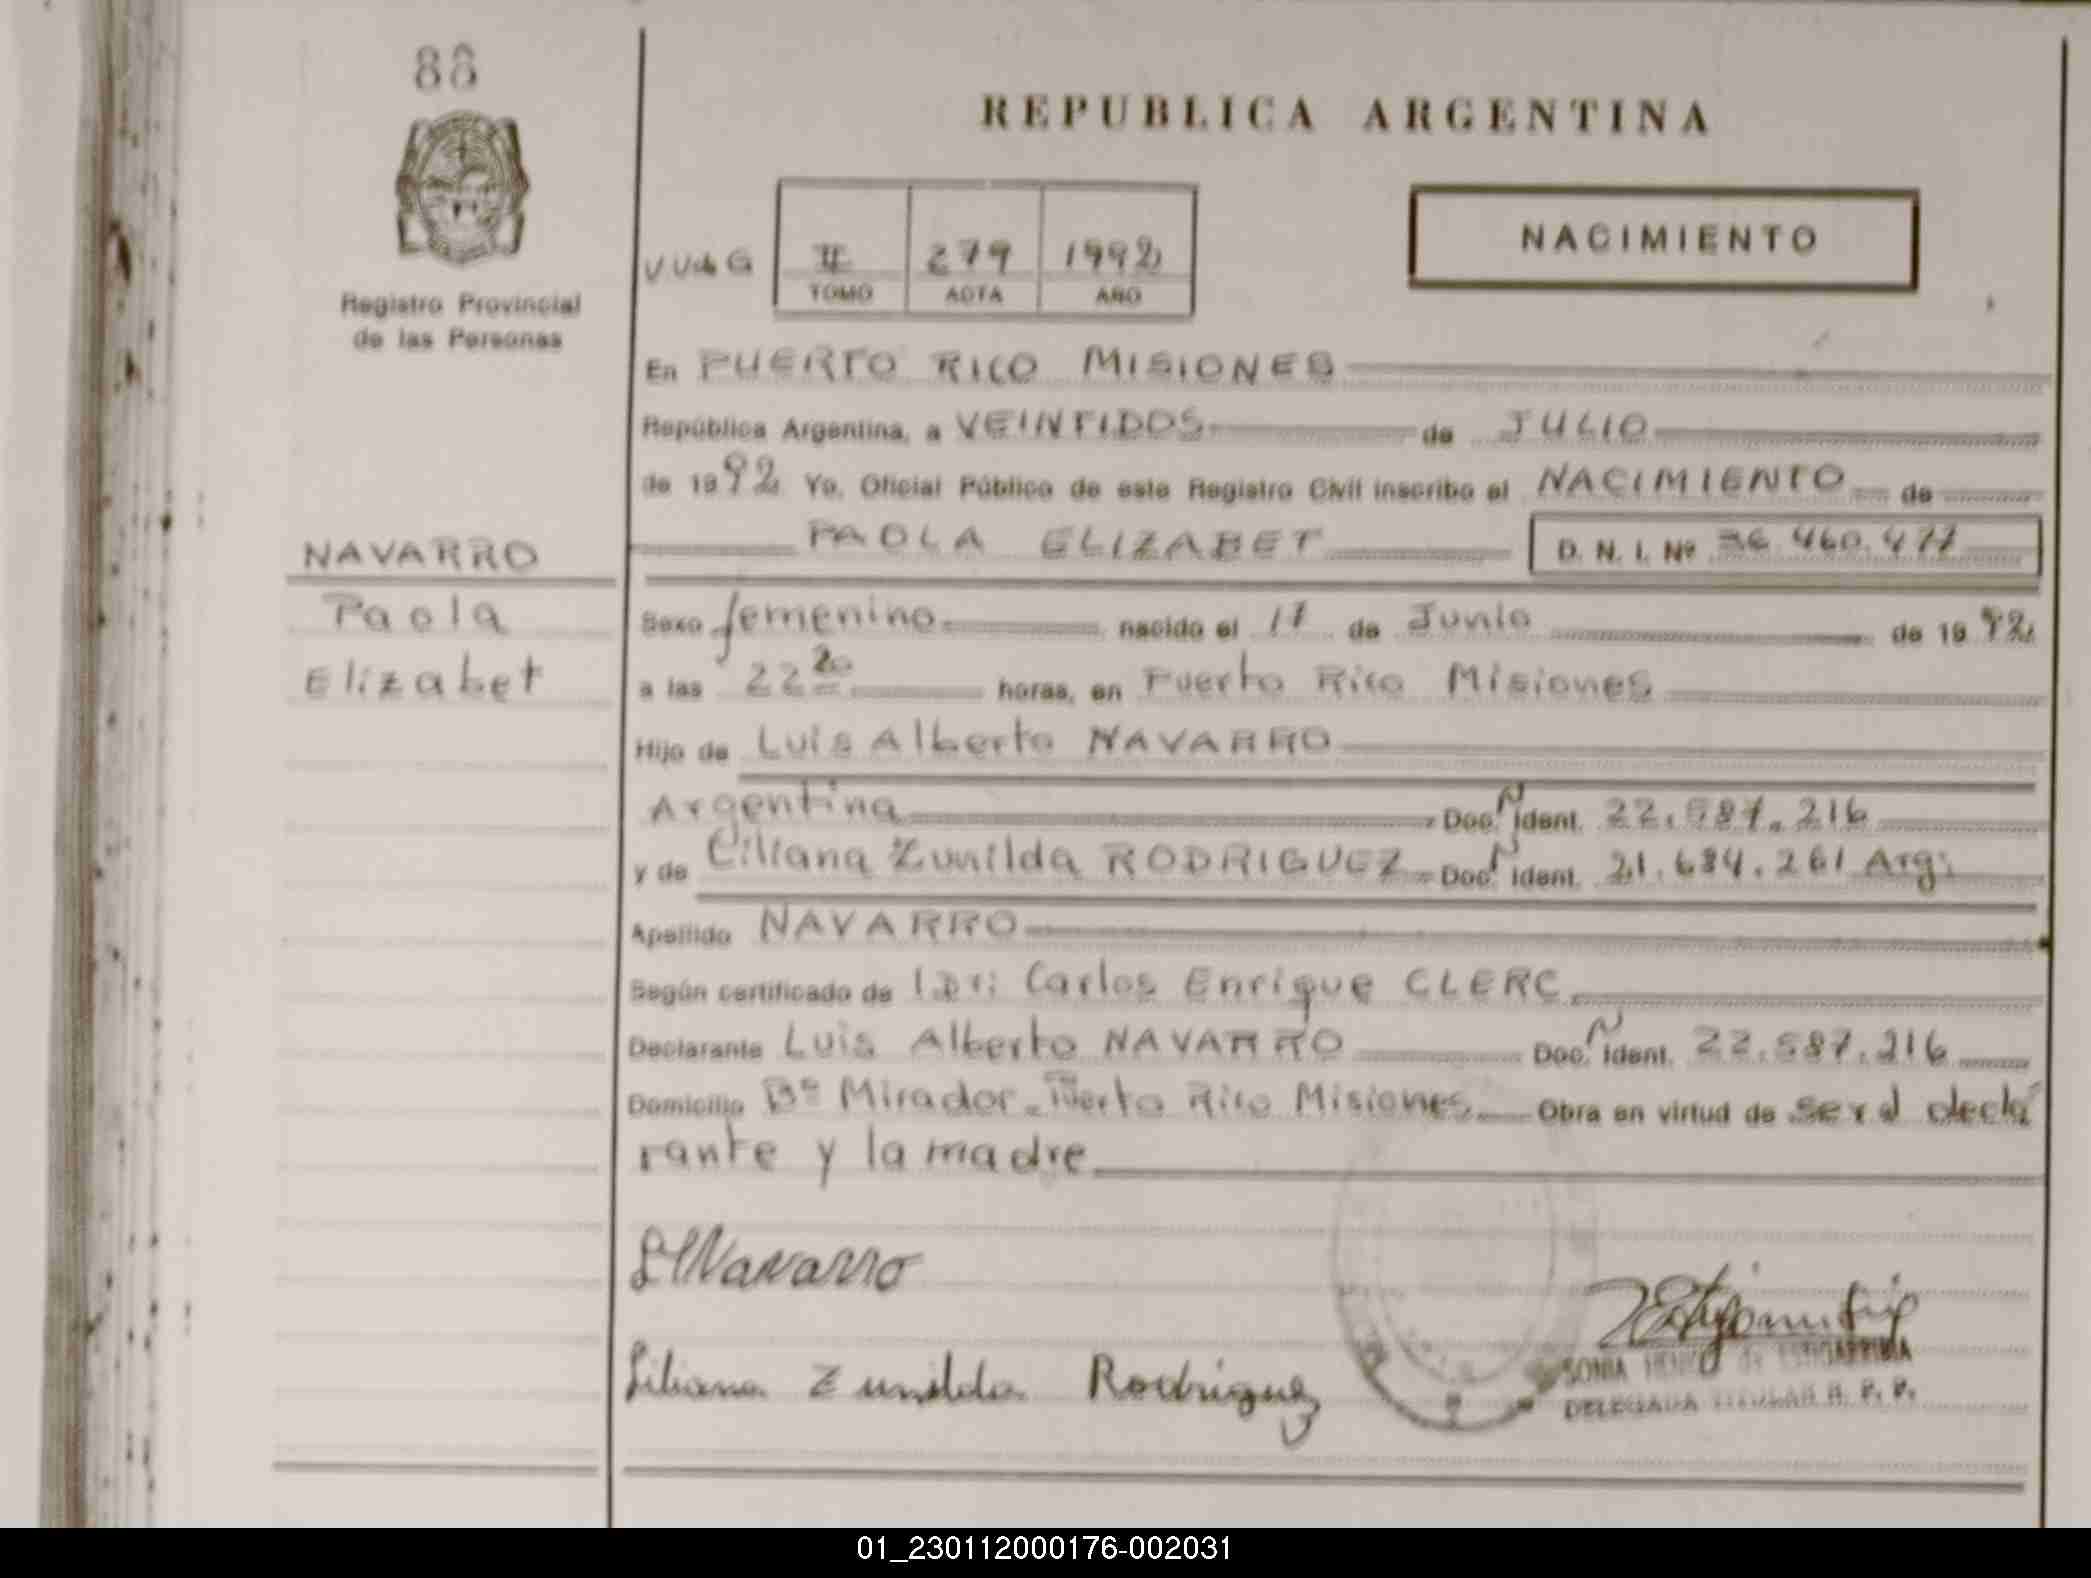 88
REPUBLICA ARGENTINA
NACIMIENTO
II 279 1992
TOMO ACTA AÑO
Registro Provincial
de las Personas
En PUERTO RICO MISIONES
República Argentina, a VEINTIDOS de JULIO
de 1992 Yo, Oficial Público de este Registro Civil inscribo el NACIMIENTO de
NAVARRO
PAOLA ELIZABET D. N. I. Nº 36.460.477
Paola
Elizabet
Sexo femenino nacido el 17 de Junio de 1992
a las 22 20 horas, en Puerto Rico Misiones
Hijo de Luis Alberto NAVARRO
Argentina Doc. N ident. 22.587.216
y de Liliana Zunilda RODRIGUEZ Doc. N ident. 21.684.261 Arg:
Apellido NAVARRO
Según certificado de Carlos Enrique CLERC
Declarante Luis Alberto NAVARRO Doc. N ident. 22.587.216
Domicilio Bº Mirador - Puerto Rico Misiones Obra en virtud de ser el decla
rante y la madre
Navarro
Liliana Zunilda Rodriguez
SONIA
DELEGADA TITULAR R. P. P.
01_230112000176-002031